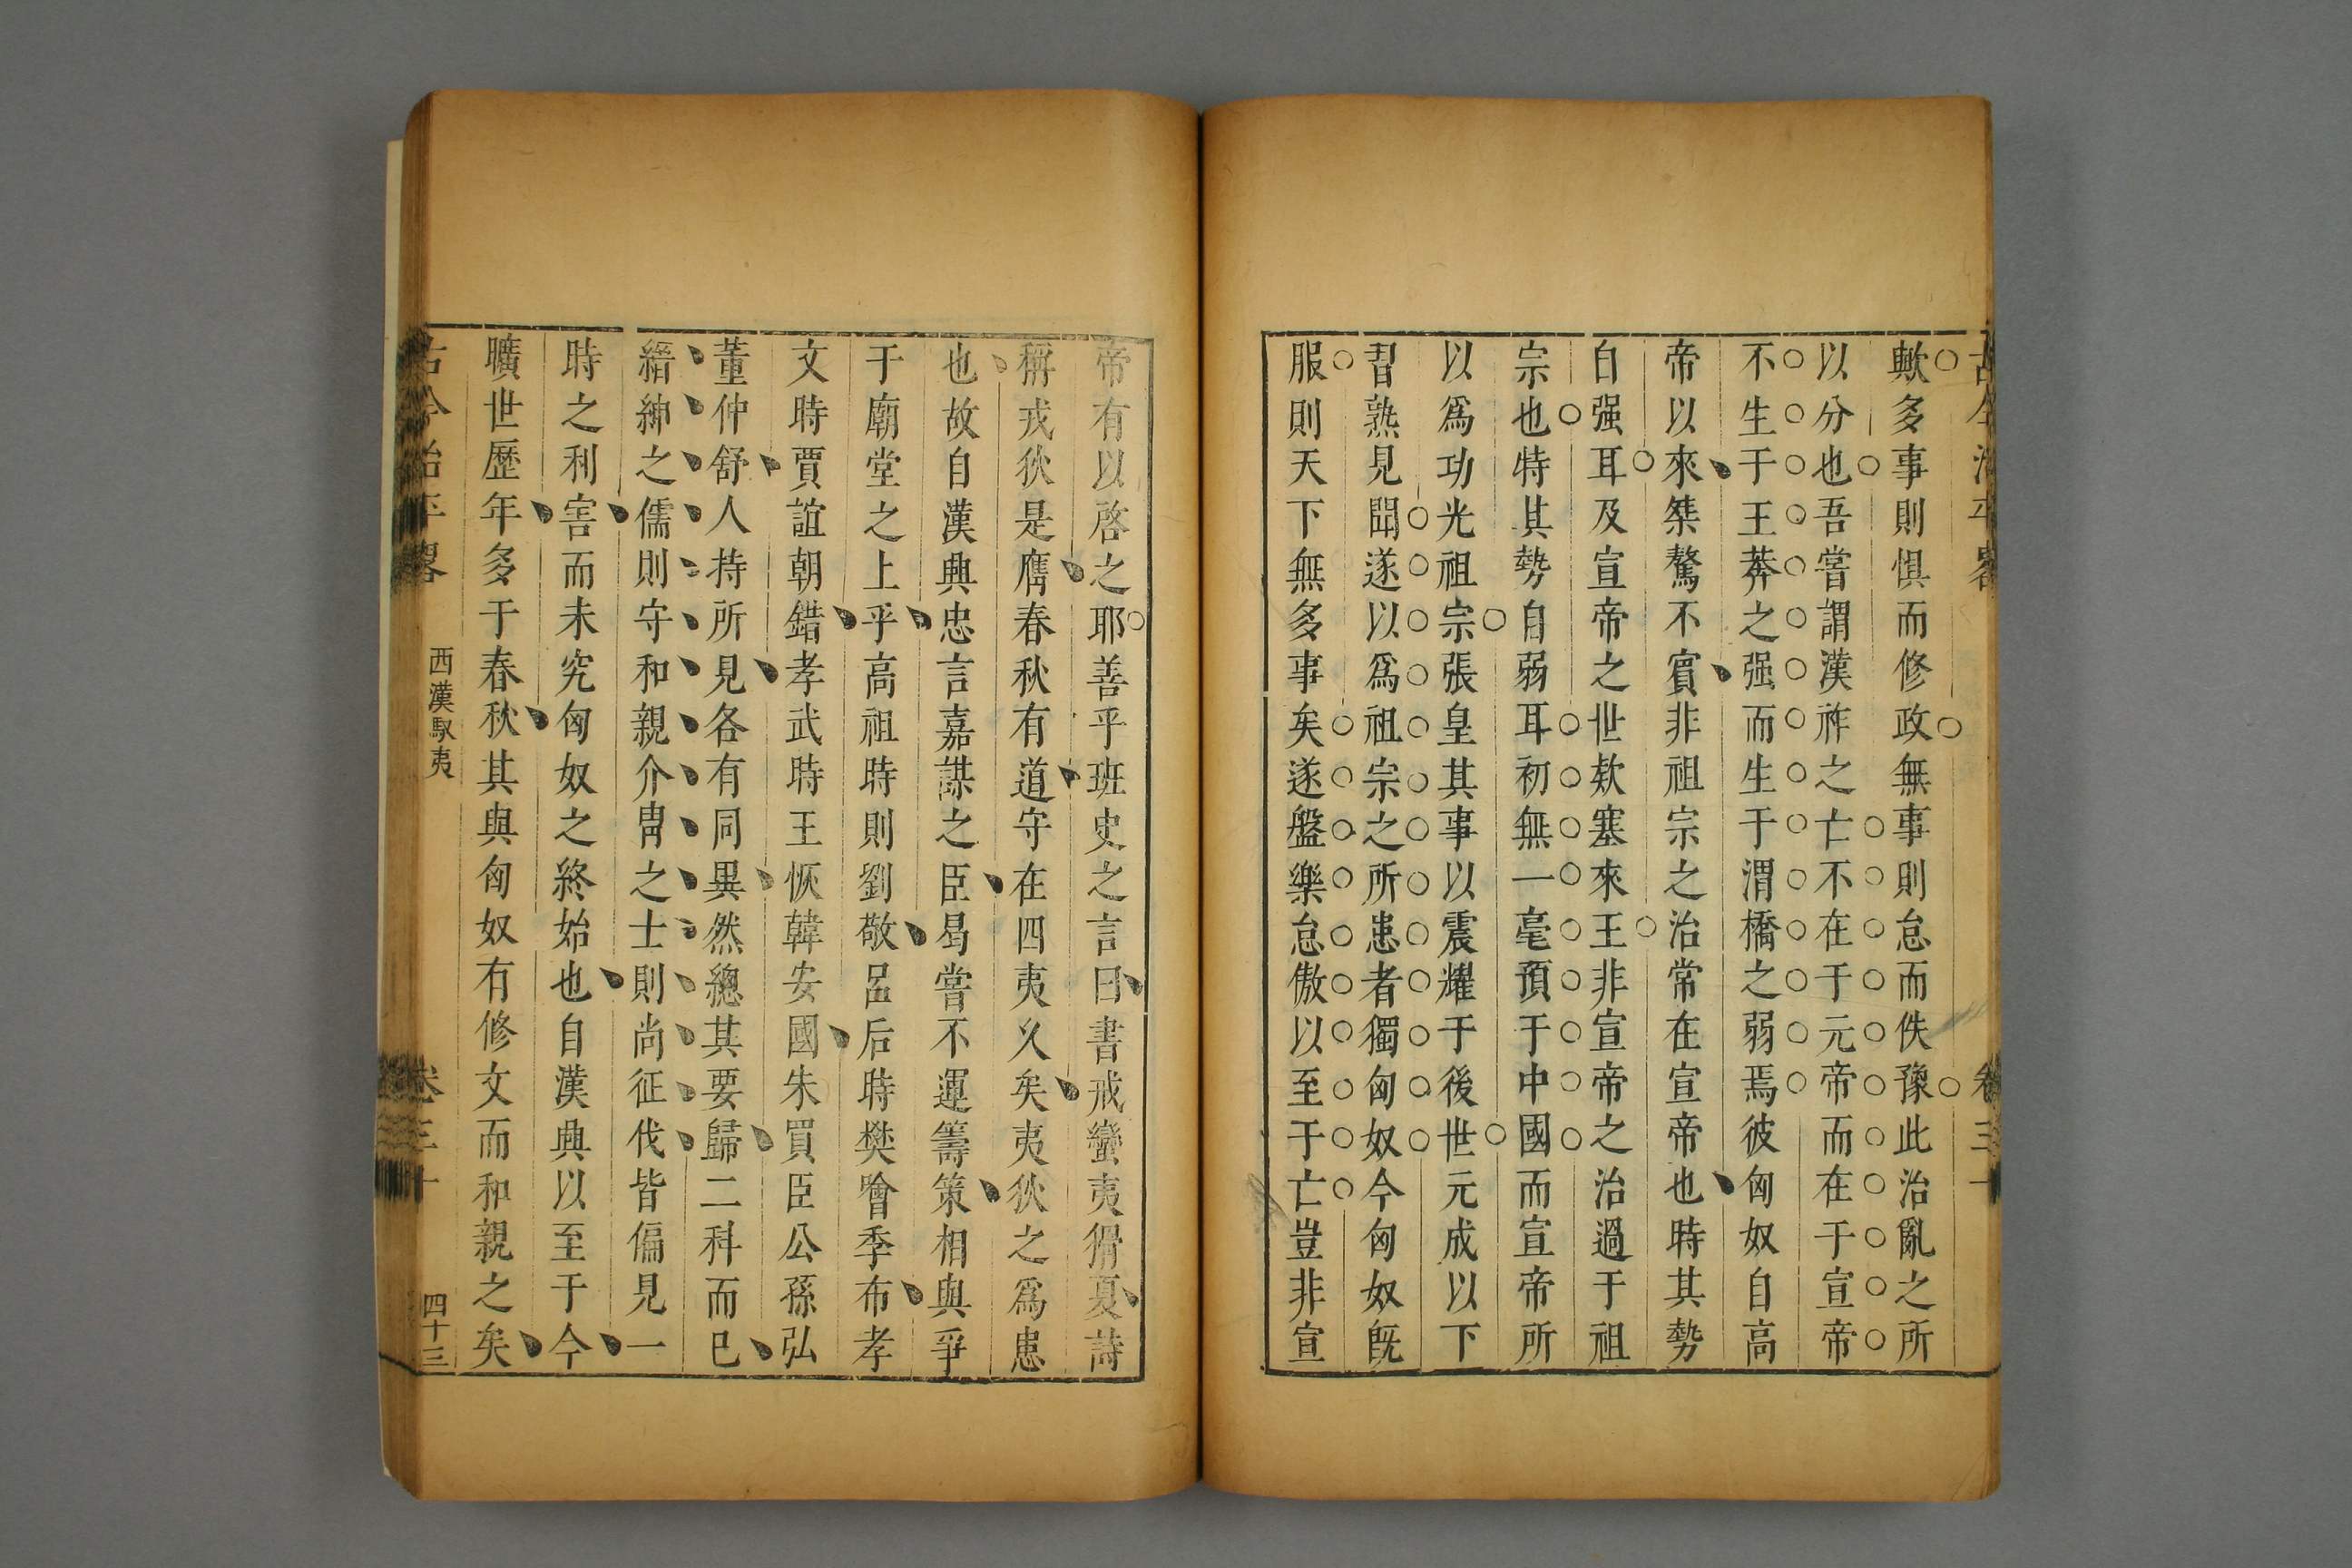 歟多事則惧而修政無事則怠而佚豫此治亂之所
以分也吾嘗謂漢祚之亡不在于元帝而在于宣帝
不生于王莽之强而生于渭橋之弱焉彼匈奴自高
帝以來桀驁不賓非祖宗之治常在宣帝也時其勢
自强耳及宣帝之世欵塞來王非宣帝之治過于祖
宗也特其勢自弱耳初無一毫預于中國而宣帝所
以爲功光祖宗張皇其事以震耀于後世元成以下
習熟見聞遂以爲祖宗之所患者獨匈奴今匈奴旣
服則天下無多事矣遂盤樂怠傲以至于亡豈非宣
帝有以啓之耶善乎班史之言曰書戒蠻夷猾夏詩
稱戎狄是膺春秋有道守在四夷久矣夷狄之爲患
也故自漢興忠言嘉謀之臣曷嘗不運籌策相與爭
于廟堂之上乎高祖時則劉敬呂后時樊噲季布孝
文時賈誼朝錯孝武時王恢韓安國朱買臣公孫弘
董仲舒人持所見各有同異然總其要歸二科而已
縉紳之儒則守和親介胄之士則尚征伐皆偏見一
時之利害而未究匈奴之終始也自漢興以至于今
曠世歷年多于春秋其與匈奴有修文而和親之矣
古今治平畧 西漢馭夷 卷三十 四十三